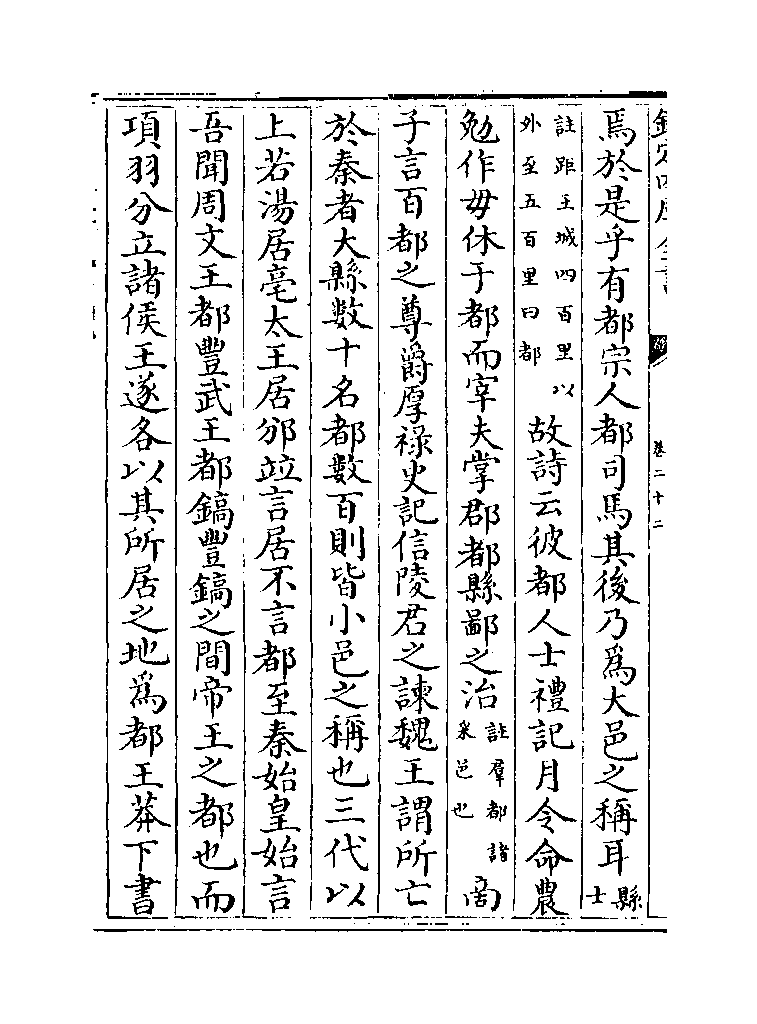 欽定四庫全書
卷二十二
焉於是乎有都宗人都司馬其後乃爲大邑之稱耳縣士
註距王城四百里以外至五百里曰都故詩云彼都人士禮記月令命農
勉作毋休于都而宰夫掌郡都縣鄙之治註羣都諸采邑也商
子言百都之尊爵厚祿史記信陵君之諫魏王謂所亡
於秦者大縣數十名都數百則皆小邑之稱也三代以
上若湯居亳太王居邠竝言居不言都至秦始皇始言
吾聞周文王都豐武王都鎬豐鎬之間帝王之都也而
項羽分立諸侯王遂各以其所居之地爲都王莽下書